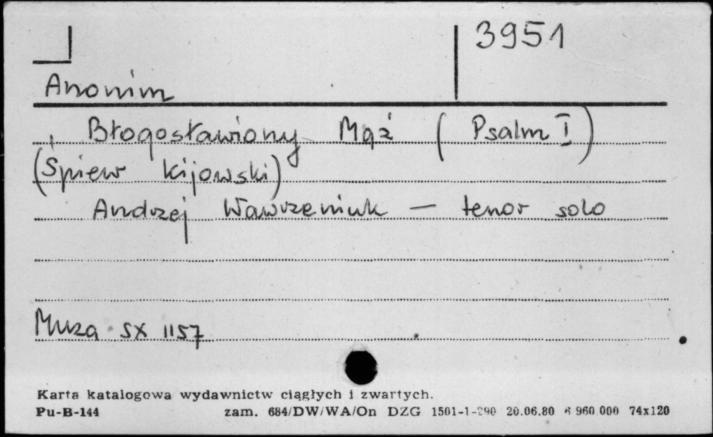 3951
Anonim
Błogosławiony Mąż (Psalm I)
(Śpiew kijowski)
Andrzej Wawrzeniuk — tenor solo
Muza SX 1157
Karta katalogowa wydawnictw ciągłych i zwartych.
Pu-B-144 zam. 684/DW/WA/On DZG 1501-1-290 20.06.80 6 960 000 74x120